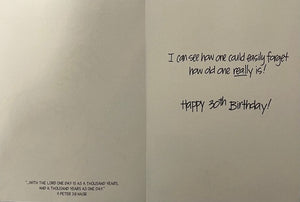 I can see how one could easily forget
how old one really is!
Happy 30th Birthday!
"...WITH THE LORD ONE DAY IS AS A THOUSAND YEARS,
AND A THOUSAND YEARS AS ONE DAY."
II PETER 3:8 NASB